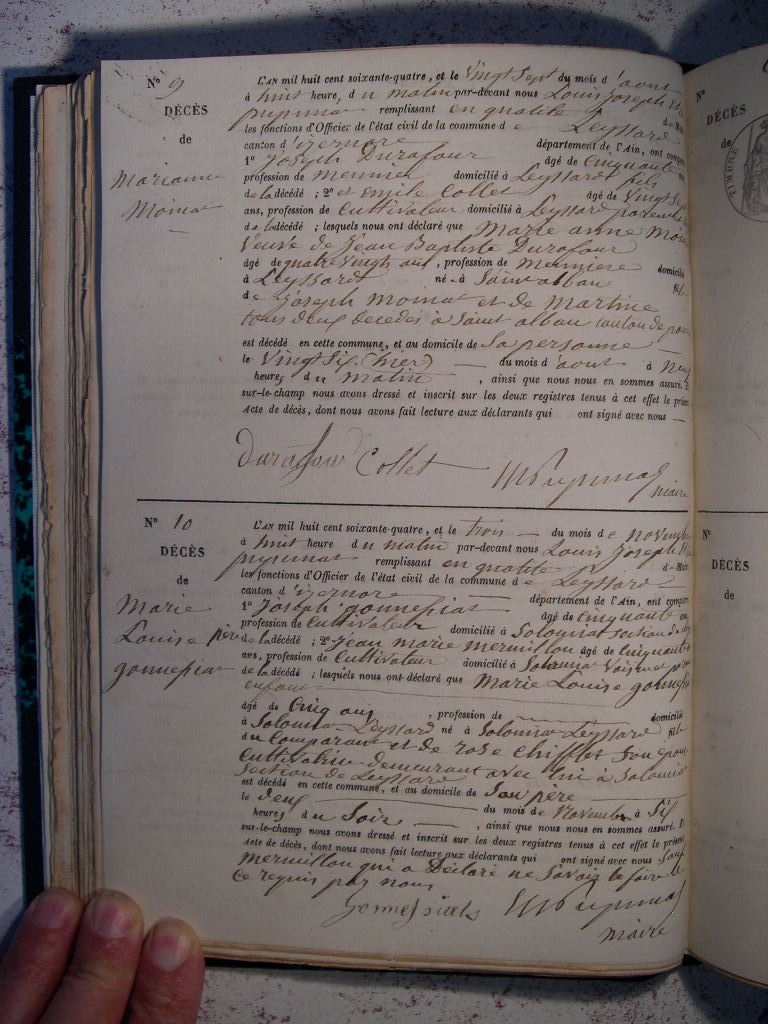 N° 9
DÉCÈS
de
Marianne
Momat
L'AN mil huit cent soixante-quatre, et le Vingt Sept du mois d'aout
à huit heure, du matin par-devant nous Louis Joseph
remplissant en qualité de
les fonctions d'Officier de l'état civil de la commune de Leyssard
canton d'izernore département de l'Ain, ont comparu
1° Joseph Durafour âgé de Cinquante
profession de meunier domicilié à Leyssard fils
de la décédé ; 2° et emile Collet âgé de Vingt
ans, profession de Cultivateur domicilié à Leyssard
de la décédé ; lesquels nous ont déclaré que Marie anne
Veuve de Jean Baptiste Durafour
âgé de quatre Vingt ans, profession de meuniere domicilié
à Leyssard né à Saint alban fil
de Joseph momat et de Martine
tous deux décédés à Saint alban canton de
est décédé en cette commune, et au domicile de Sa personne
le Vingt Six (hier) du mois d'aout à
heures du matin, ainsi que nous nous en sommes assuré. Et
sur-le-champ nous avons dressé et inscrit sur les deux registres tenus à cet effet le présent
Acte de décès, dont nous avons fait lecture aux déclarants qui ont signé avec nous
Durafour Collet
maire
N° 10
DÉCÈS
de
Marie
Louise
gonnessiat
L'AN mil huit cent soixante-quatre, et le trois du mois de novembre
à huit heure du matin par-devant nous Louis Joseph
remplissant en qualité de
les fonctions d'Officier de l'état civil de la commune de Leyssard
canton d'izernore département de l'Ain, ont comparu
1° Joseph gonnessiat âgé de Cinquante ans,
profession de Cultivateur domicilié à Solomiat section de
de la décédé ; 2° Jean marie mermillon âgé de Cinquante
ans, profession de Cultivateur domicilié à Solomiat Voisin
de la décédé ; lesquels nous ont déclaré que Marie Louise
enfant
âgé de Cinq ans, profession de domicilié
à Solomiat Leyssard né à Solomiat Leyssard fill
du Comparant et de rose Chifflet Son
Cultivatrice demeurant avec lui à Solomiat
Section de Leyssard
est décédé en cette commune, et au domicile de Son père
le deux du mois de Novembre à Six
heures du Soir, ainsi que nous nous en sommes assuré. Et
sur-le-champ nous avons dressé et inscrit sur les deux registres tenus à cet effet le présent
Acte de décès, dont nous avons fait lecture aux déclarants qui ont signé avec nous Sauf
mermillon qui a Déclaré ne Savoir le faire
Ce requis par nous
maire
N°
DÉCÈS
de
TIMBRE
N°
DÉCÈS
de